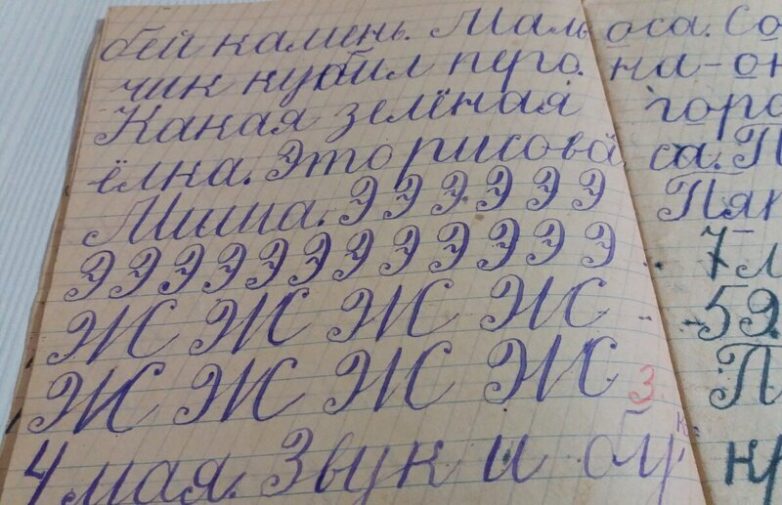 бей камень. Маль
чик кубил перо.
Какая зелёная
ёлка. Это рисова
Миша. Э Э Э Э Э Э
Э Э Э Э Э Э Э Э Э Э Э
Ж Ж Ж Ж
Ж Ж Ж Ж 3
4 мая. Звук и бук
оса. Со
на-он
горо
са. П
7 л
П
кр